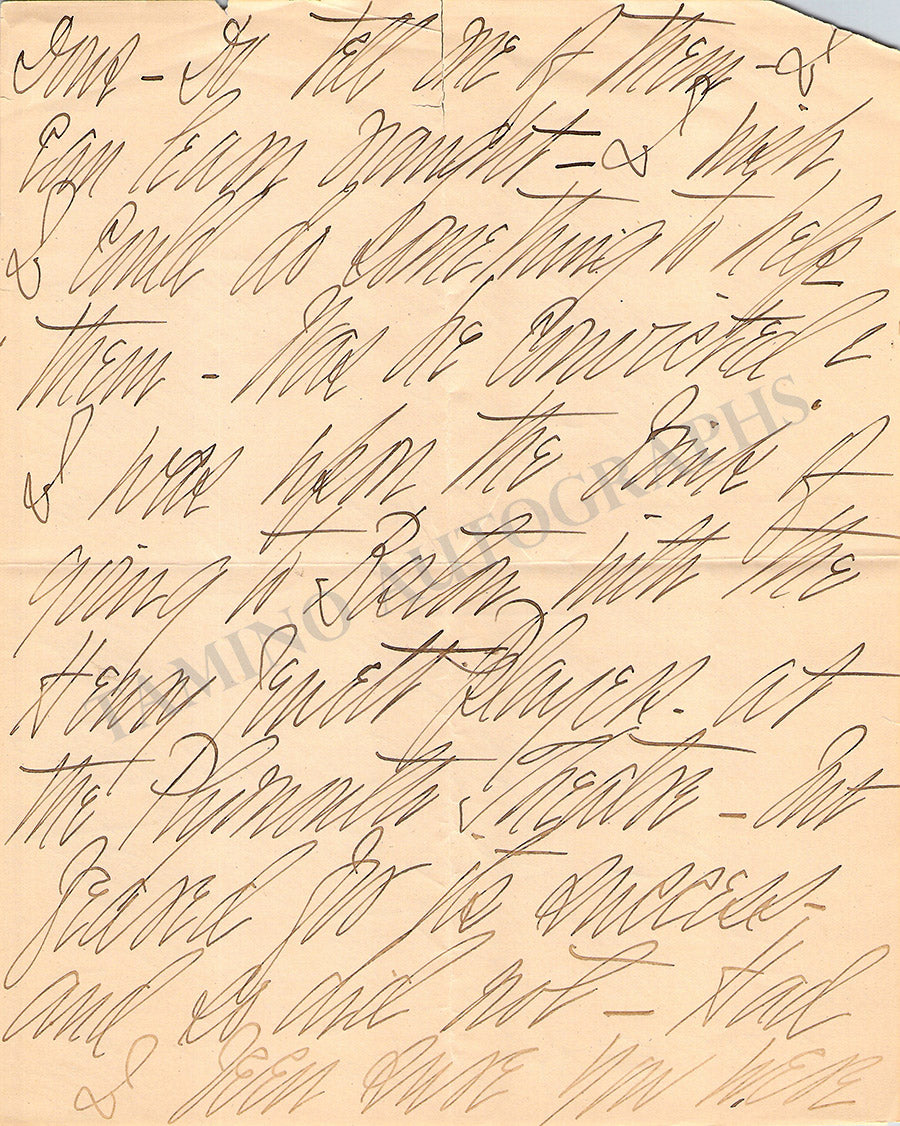 Do tell me of them - I
can learn naught - I wish
I could do something to help
them - Was he convicted
I was upon the point of
going to Boston with the
Henry Jewett Players - at
the Plymouth Theatre - but
feared for its success -
and so did not - Had
I been sure you were
TAMINO AUTOGRAPHS